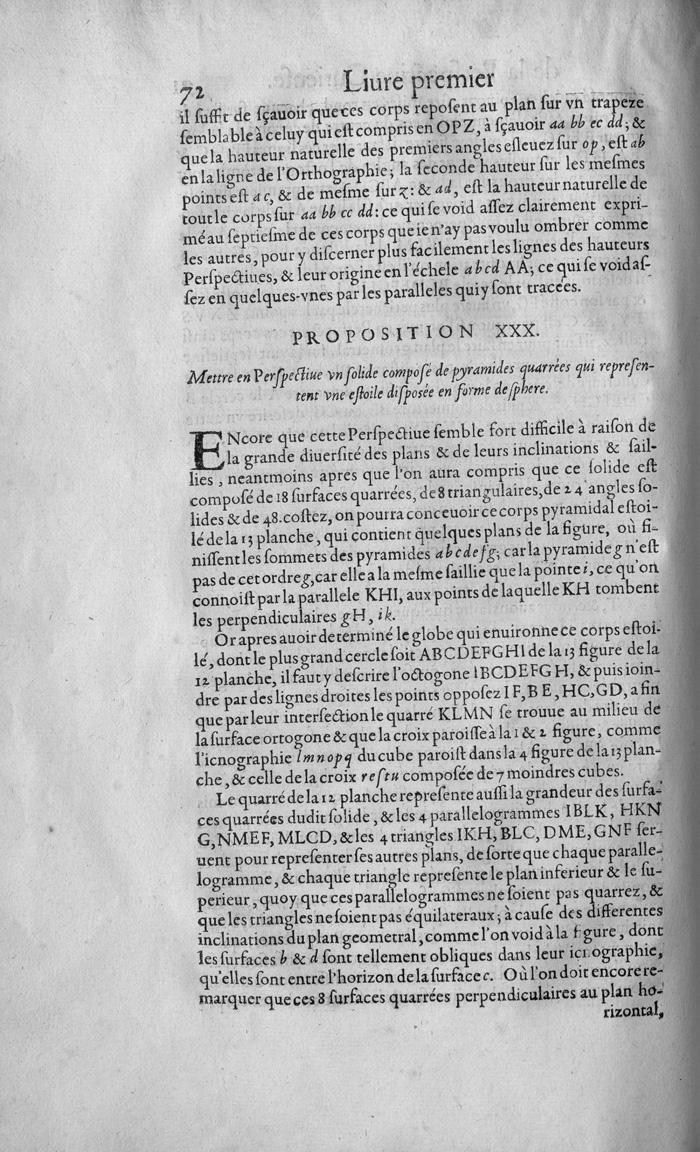 72
Liure premier
il suffit de sçauoir que ces corps reposent au plan sur vn trapeze
semblable à celuy qui est compris en OPZ, à sçauoir aa bb ec dd; &
que la hauteur naturelle des premiers angles esleuez sur op, est ab
en la ligne de l'Orthographie; la seconde hauteur sur les mesmes
points est ac, & de mesme sur z: & ad, est la hauteur naturelle de
tout le corps sur aa bb cc dd: ce qui se void assez clairement expri-
mé au septiesme de ces corps que ie n'ay pas voulu ombrer comme
les autres, pour y discerner plus facilement les lignes des hauteurs
Perspectiues, & leur origine en l'échele abcd AA; ce qui se void as-
sez en quelques-vnes par les paralleles qui y sont tracées.
PROPOSITION XXX.
Mettre en Perspectiue vn solide composé de pyramides quarrées qui represen-
tent vne estoile disposée en forme de sphere.
ENcore que cette Perspectiue semble fort difficile à raison de
la grande diuersité des plans & de leurs inclinations & sail-
lies, neantmoins apres que l'on aura compris que ce solide est
composé de 18 surfaces quarrées, de 8 triangulaires, de 24 angles so-
lides & de 48. costez, on pourra conceuoir ce corps pyramidal estoi-
lé de la 13 planche, qui contient quelques plans de la figure, où fi-
nissent les sommets des pyramides abcdefg; car la pyramide g n'est
pas de cet ordre g, car elle a la mesme saillie que la pointe i, ce qu'on
connoist par la parallele KHI, aux points de laquelle KH tombent
les perpendiculaires gH, ik.
Or apres auoir determiné le globe qui enuironne ce corps estoi-
lé, dont le plus grand cercle soit ABCDEFGHI de la 13 figure de la
12 planche, il faut y descrire l'octogone IBCDEFGH, & puis ioin-
dre par des lignes droites les points opposez IF, BE, HC, GD, afin
que par leur intersection le quarré KLMN se trouue au milieu de
la surface ortogone & que la croix paroisse à la 1 & 2 figure, comme
l'icnographie lmnopq du cube paroist dans la 4 figure de la 13 plan-
che, & celle de la croix restu composée de 7 moindres cubes.
Le quarré de la 12 planche represente aussi la grandeur des surfa-
ces quarrées dudit solide, & les 4 parallelogrammes IBLK, HKN
G, NMEF, MLCD, & les 4 triangles IKH, BLC, DME, GNF ser-
uent pour representer ses autres plans, de sorte que chaque paralle-
logramme, & chaque triangle represente le plan inferieur & le su-
perieur, quoy que ces parallelogrammes ne soient pas quarrez, &
que les triangles ne soient pas équilateraux; à cause des differentes
inclinations du plan geometral, comme l'on void à la figure, dont
les surfaces b & d sont tellement obliques dans leur icnographie,
qu'elles sont entre l'horizon de la surface c. Où l'on doit encore re-
marquer que ces 8 surfaces quarrées perpendiculaires au plan ho-
rizontal,